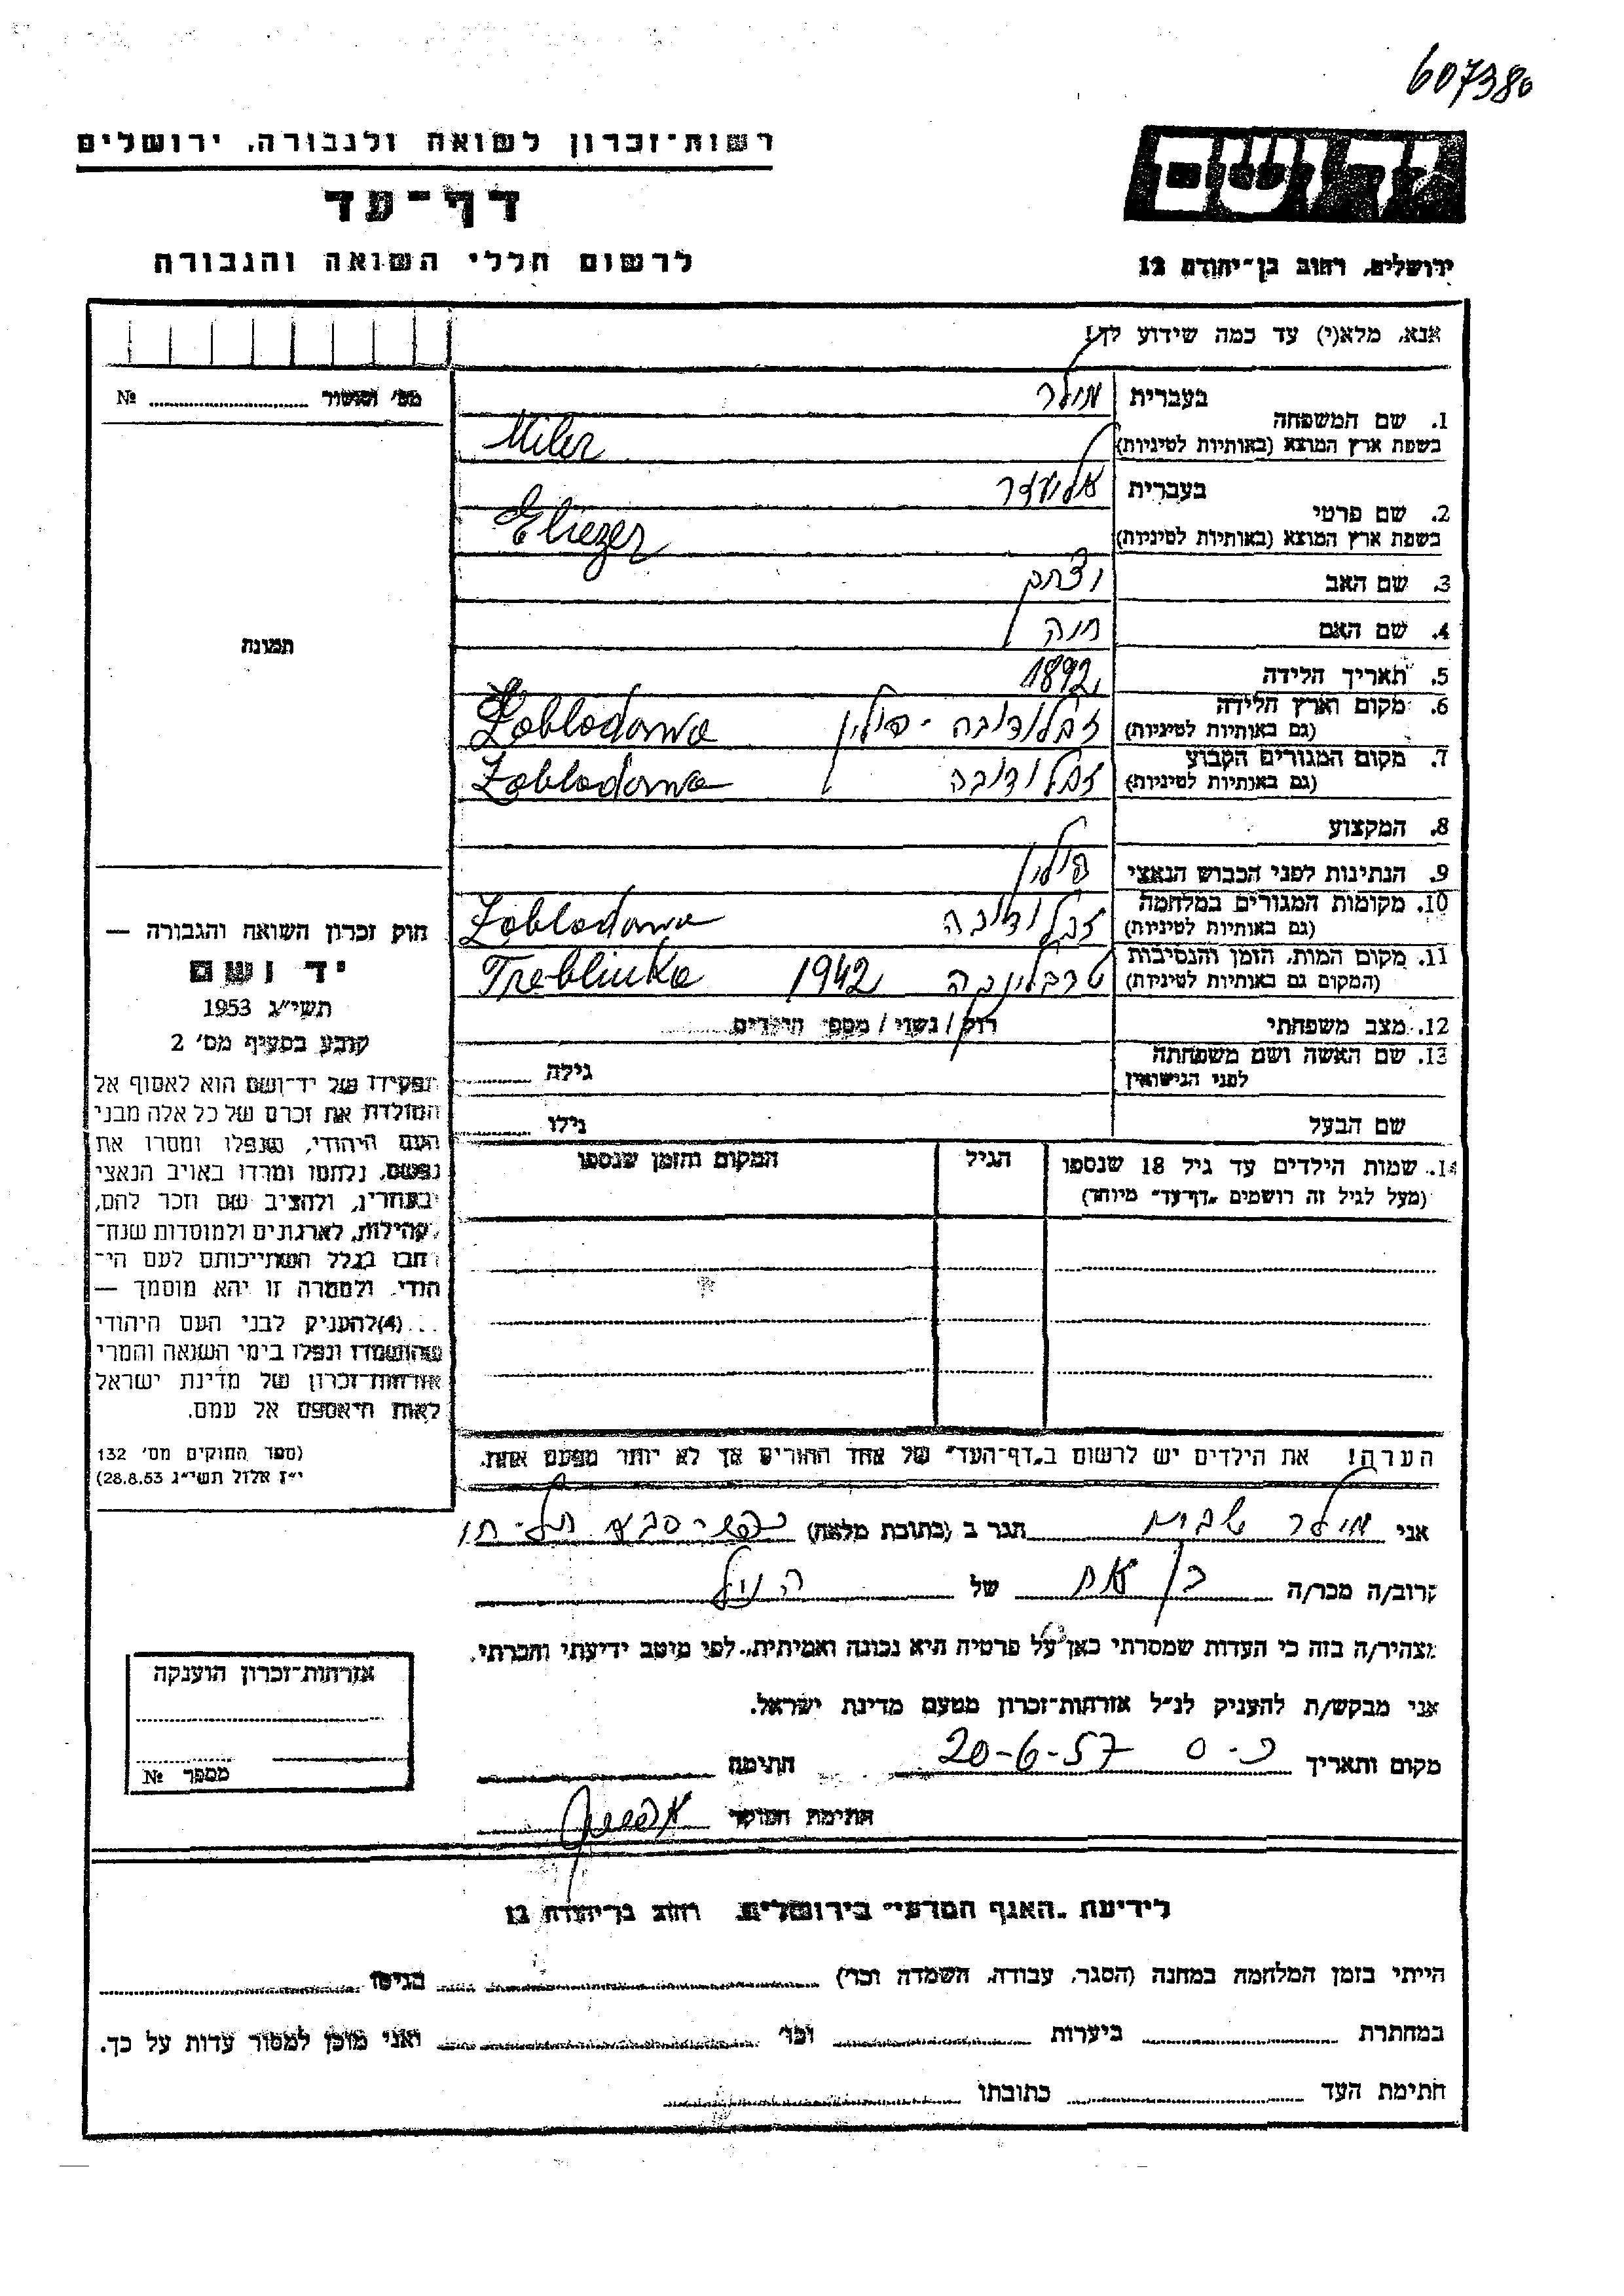 607380
רשות־זכרון לשואה ולגבורה, ירושלים
יד ושם
דף־עד
לרשום חללי השואה והגבורה
ירושלים, רחוב בן־יהודה 12
אנא, מלא(י) עד כמה שידוע לך!
מס' ושושר № ........
1. שם המשפחה בעברית מילר
בשפת ארץ המוצא (באותיות לטיניות) Miler
2. שם פרטי בעברית אליעזר
בשפת ארץ המוצא (באותיות לטיניות) Eliezer
3. שם האב יצחק
4. שם האם חנה
תמונה
5. תאריך הלידה 1892
6. מקום וארץ הלידה (גם באותיות לטיניות) זבלודובה - פולין Zabludowa
7. מקום המגורים הקבוע (גם באותיות לטיניות) זבלודובה Zabludowa
8. המקצוע
9. הנתינות לפני הכבוש הנאצי פולין
10. מקומות המגורים במלחמה (גם באותיות לטיניות) זבלודובה Zabludowa
11. מקום המות, הזמן והנסיבות (המקום גם באותיות לטיניות) טרבלינקה 1942 Treblinka
12. מצב משפחתי רוק / נשוי / מספר הילדים
13. שם האשה ושם משפחתה לפני הנישואין גילה
שם הבעל גילו
14. שמות הילדים עד גיל 18 שנספו הגיל המקום והזמן שנספו
(מעל לגיל זה רושמים „דף־עד" מיוחד)
הערה! את הילדים יש לרשום ב„דף־העד" של אחד ההורים אך לא יותר מפעם אחת.
חוק זכרון השואה והגבורה —
יד ושם
תשי"ג 1953
קובע בסעיף מס' 2
תפקידו של יד־ושם הוא לאסוף אל
המולדת את זכרם של כל אלה מבני
העם היהודי, שנפלו ומסרו את
נפשם, נלחמו ומרדו באויב הנאצי
ובעוזריו, ולהציב שם וזכר להם,
לקהילות, לארגונים ולמוסדות שנח־
רבו בגלל השתייכותם לעם הי־
הודי, ולמטרה זו יהא מוסמך —
...(4)להעניק לבני העם היהודי
שהושמדו ונפלו בימי השואה והמרי
אזרחות־זכרון של מדינת ישראל
לאות היאספם אל עמם.
(ספר החוקים מס' 132
י"ז אלול תשי"ג 28.8.53)
אני מילר הגר ב (כתובת מלאה) כפר־סבא תל-חי
קרוב/ה מכר/ה בן אח של הנ"ל
מצהיר/ה בזה כי העדות שמסרתי כאן על פרטיה היא נכונה ואמיתית, לפי מיטב ידיעתי והכרתי.
אני מבקש/ת להעניק לנ"ל אזרחות־זכרון מטעם מדינת ישראל.
מקום ותאריך כ-ס 20-6-57 חתימה
חתימת הפוקד
אזרחות־זכרון הוענקה
מספר №
לידיעת „האגף המדעי" בירושלים, רחוב בן־יהודה 12
הייתי בזמן המלחמה במחנה (הסגר, עבודה, השמדה וכו') בגיטו
במחתרת ביערות וכו' ואני מוכן למסור עדות על כך.
חתימת העד כתובתו